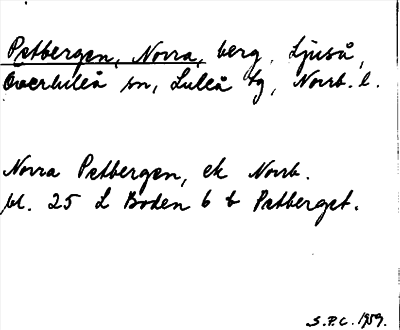 Petbergen, Norra, berg, Ljuså,
Överluleå sn, Luleå tg, Norrb. l.
Norra Petbergen, ek Norrb.
bl. 25 L Boden 6 b Petberget.
S.P.C. 1959.